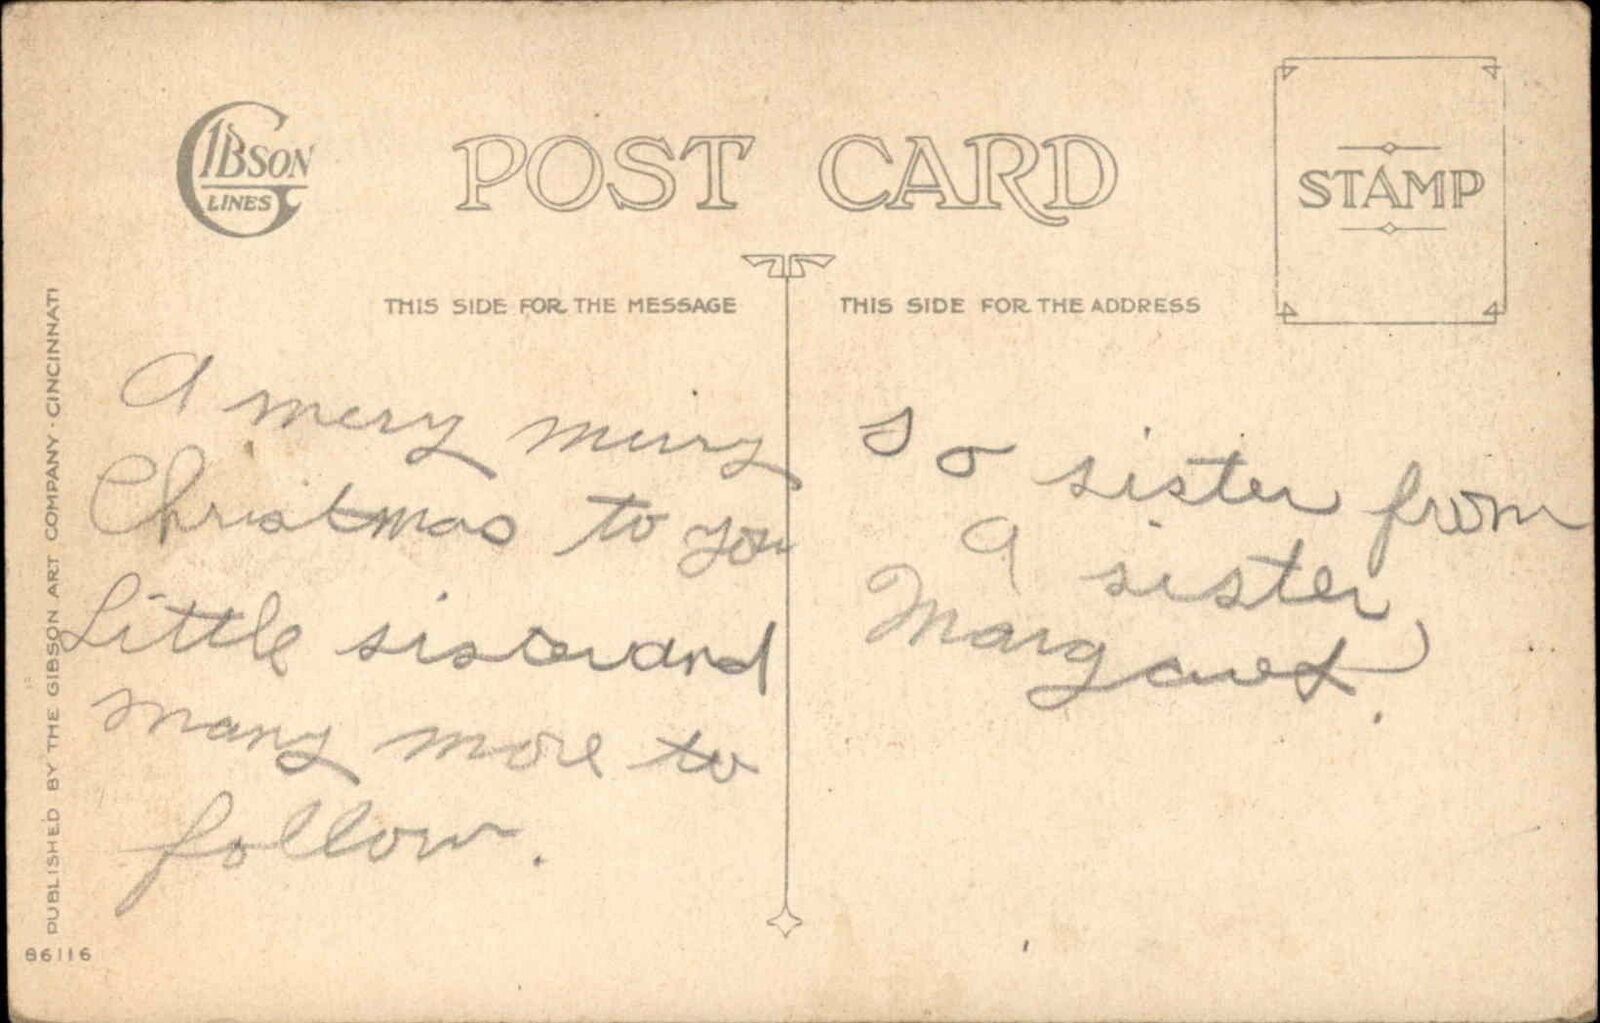 GIBSON
LINES
POST CARD
STAMP
THIS SIDE FOR THE MESSAGE
THIS SIDE FOR THE ADDRESS
A mery merry
Christmas to you
Little sister and
many more to
follow.
So sister from
A sister
Margaret.
PUBLISHED BY THE GIBSON ART COMPANY · CINCINNATI
86116